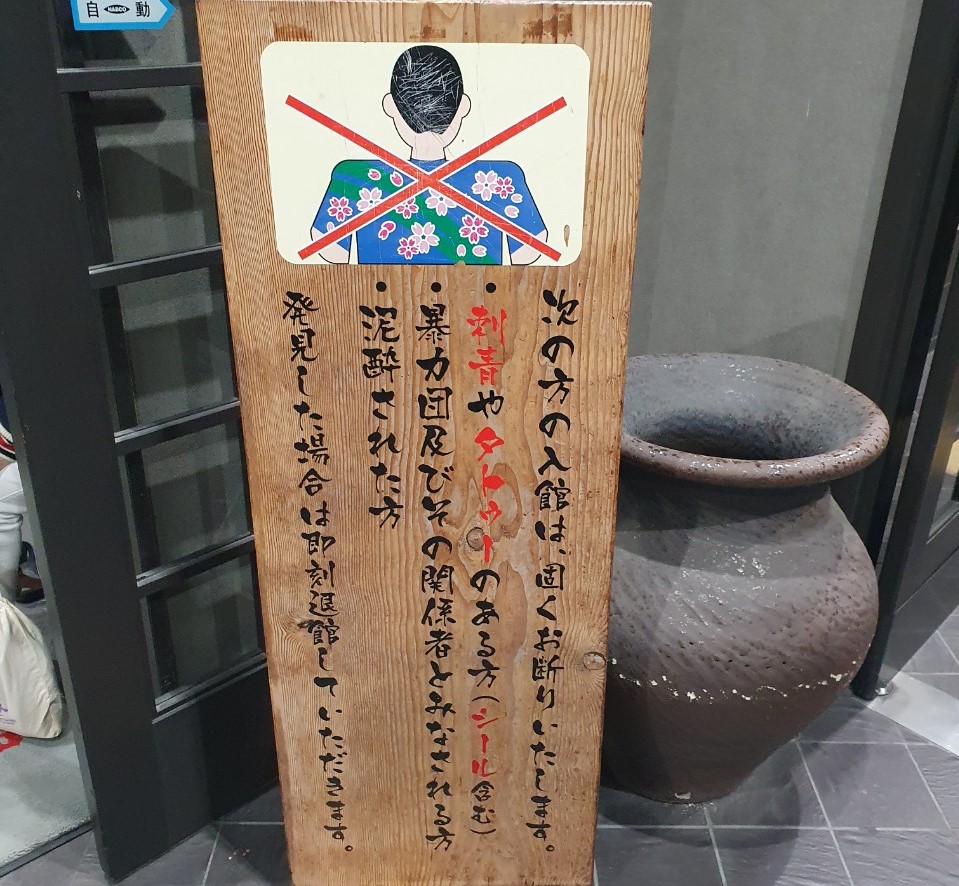 自 NABCO 動
次の方の入館は、固くお断りいたします。
・刺青やタトゥーのある方(シール含む)
・暴力団及びその関係者とみなされる方
・泥酔された方
発見した場合は即刻退館していただきます。